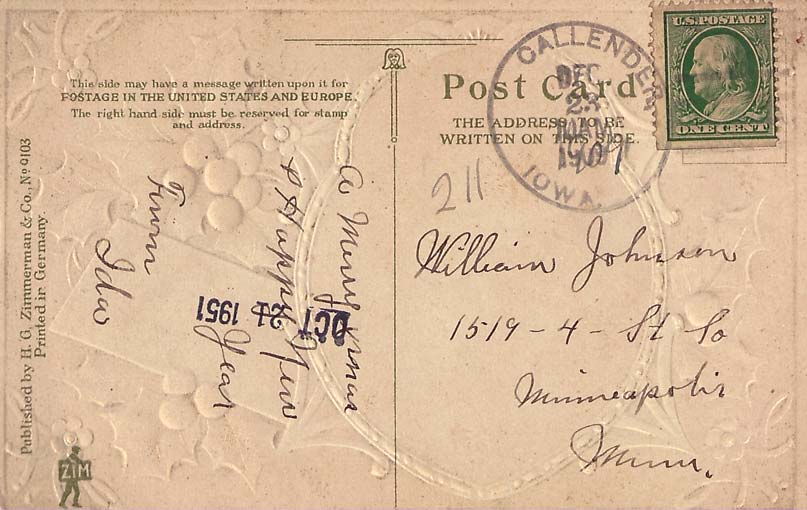 This side may have a message written upon it for
POSTAGE IN THE UNITED STATES AND EUROPE.
The right hand side must be reserved for stamp
and address.
Post Card
THE ADDRESS TO BE
WRITTEN ON THIS SIDE.
CALLENDER
DEC
23
1909
IOWA.
U.S. POSTAGE
ONE CENT
211
William Johnson
1519 - 4 - St So
Minneapolis
Minn.
A Merry Xmas
& Happy New
Year
From
Ida
OCT 24 1951
Published by H. G. Zimmerman & Co., No 9103
Printed in Germany.
ZIM